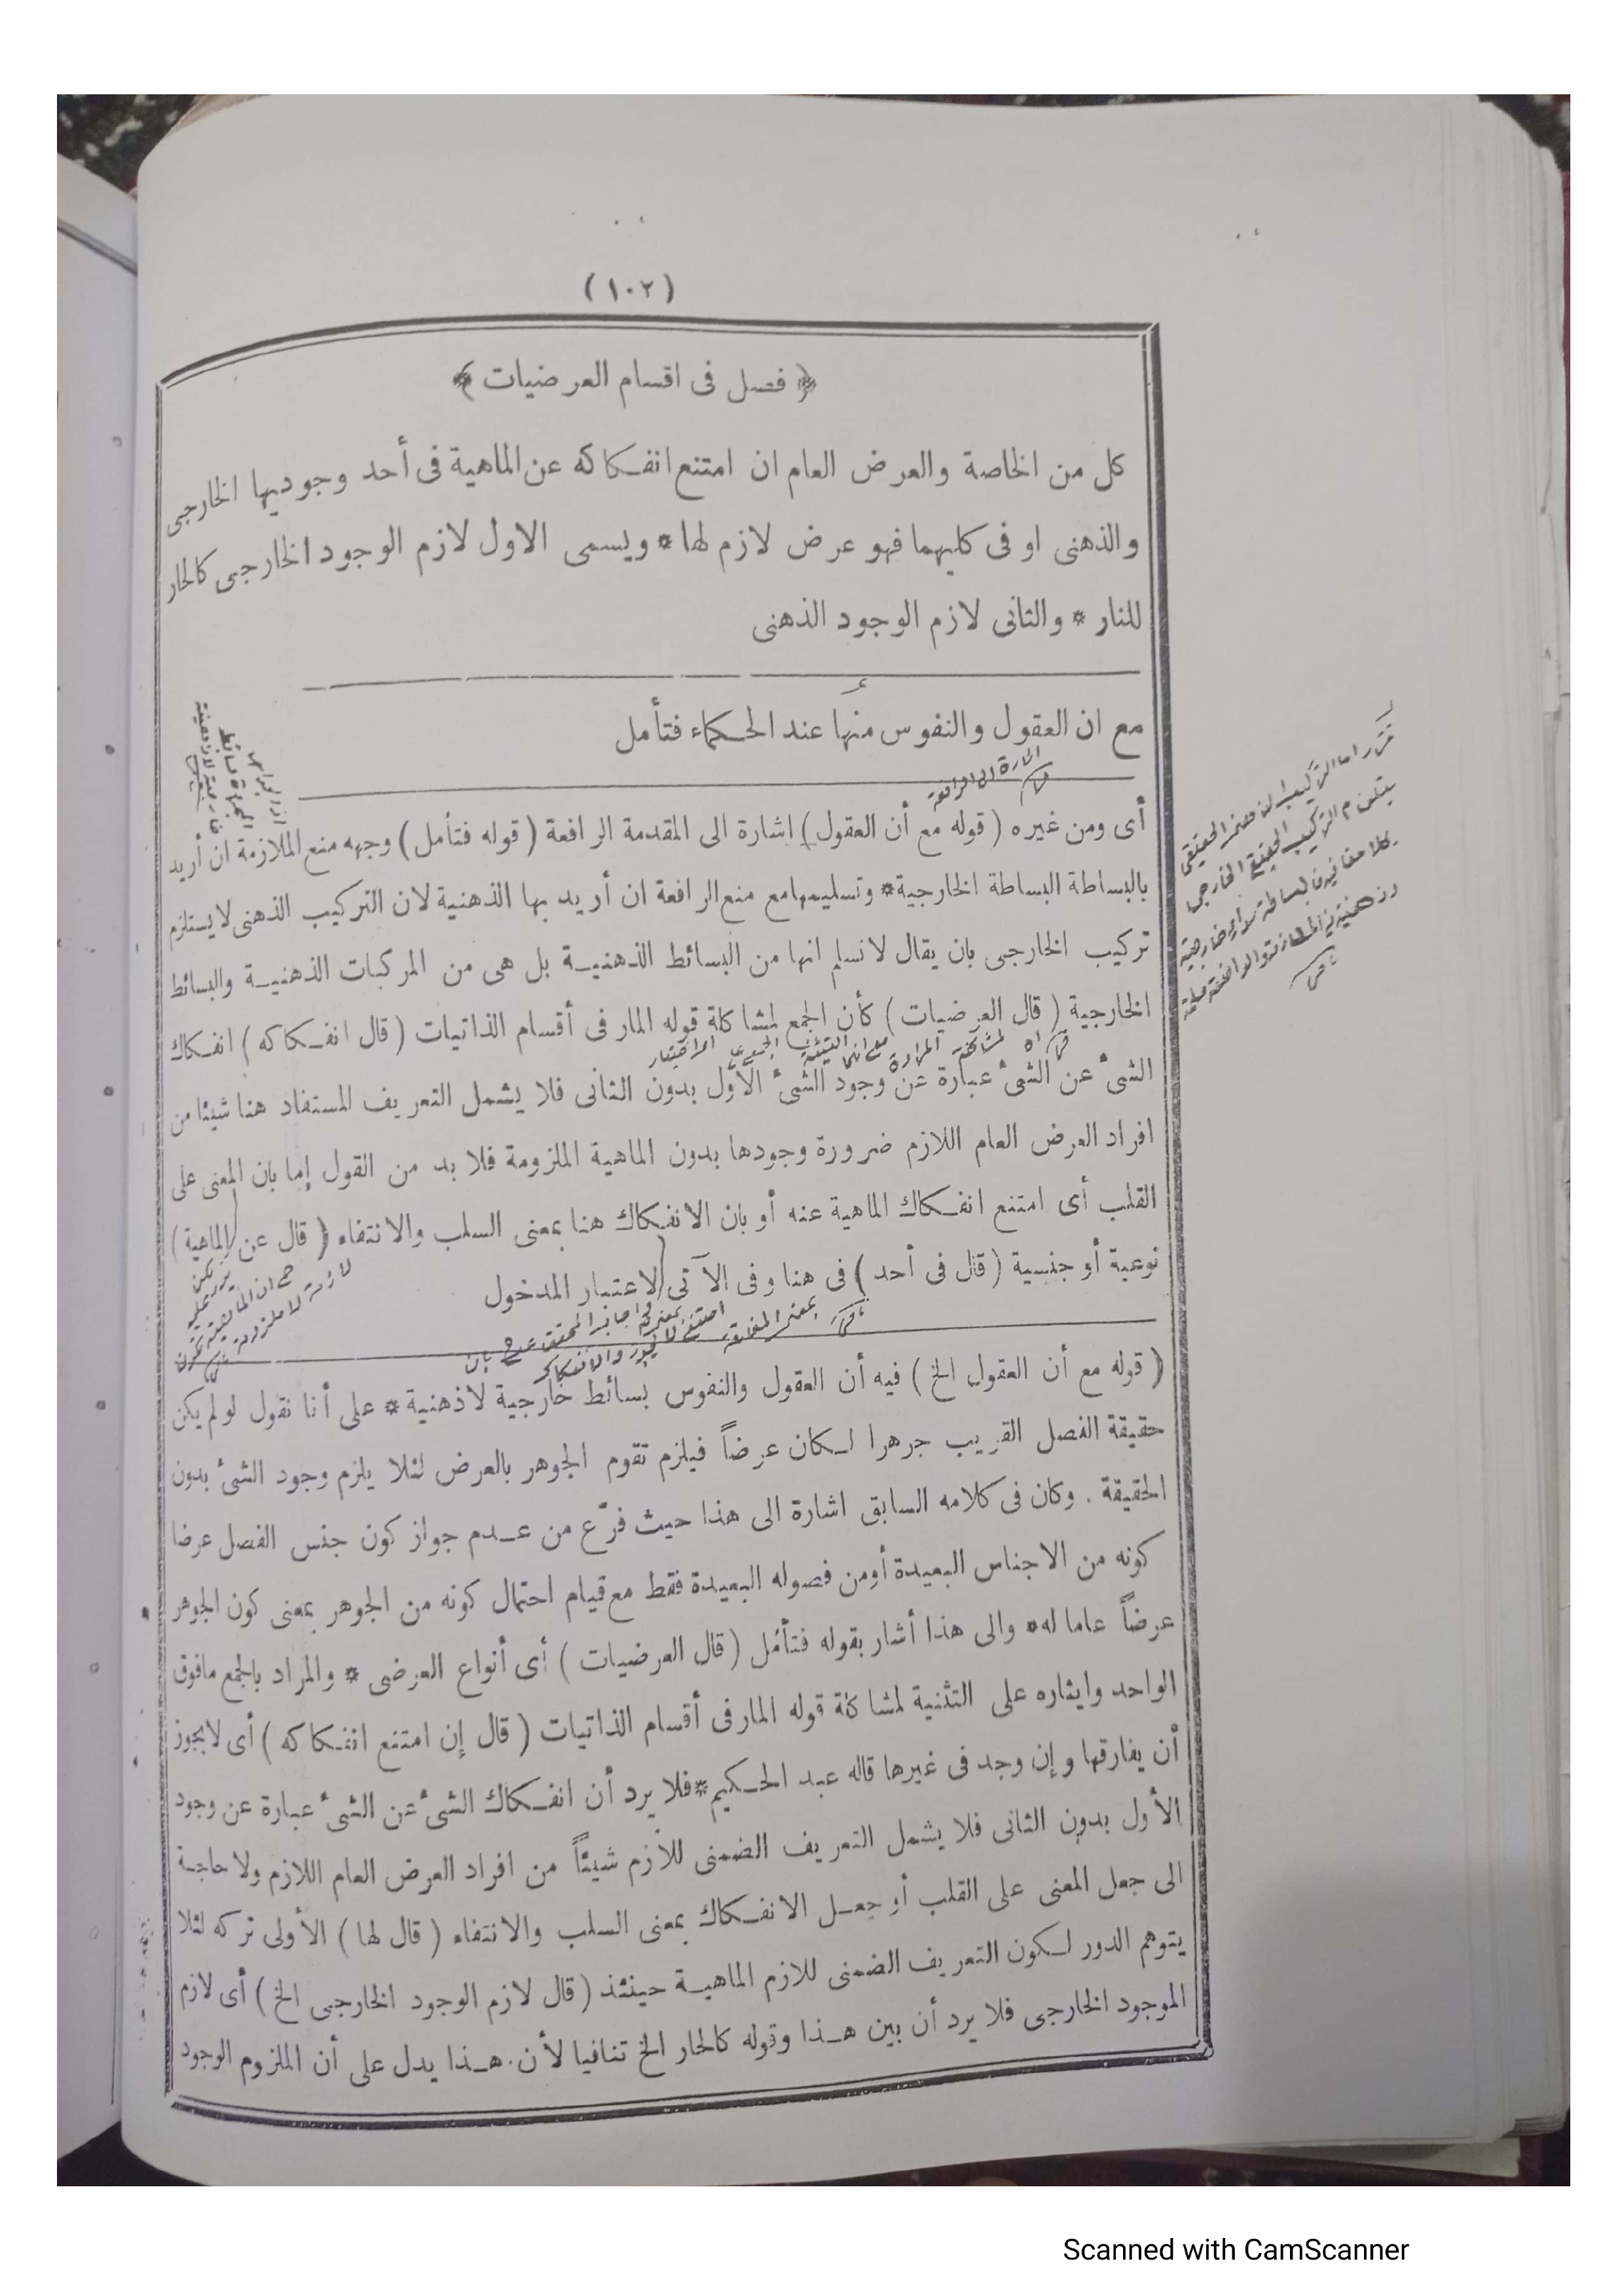 (١٠٢)
﴿ فصل فى اقسام العرضيات ﴾
كل من الخاصة والعرض العام ان امتنع انفكاكه عن الماهية فى أحد وجوديها الخارجى
والذهنى او فى كليهما فهو عرض لازم لها * ويسمى الاول لازم الوجود الخارجى كالحار
للنار * والثانى لازم الوجود الذهنى
مع ان العقول والنفوس منها عند الحكماء فتأمل
أى ومن غيره ( قوله مع أن العقول ) اشارة الى المقدمة الرافعة ( قوله فتأمل ) وجهه منع الملازمة ان أريد
بالبساطة البساطة الخارجية * وتسليمها مع منع الرافعة ان أريد بها الذهنية لان التركيب الذهنى لا يستلزم
تركيب الخارجى بان يقال لا نسلم انها من البسائط الذهنية بل هى من المركبات الذهنية والبسائط
الخارجية ( قال العرضيات ) كأن الجمع لمشاكلة قوله المار فى أقسام الذاتيات ( قال انفكاكه ) انفكاك
الشئ عن الشئ عبارة عن وجود الشئ الأول بدون الثانى فلا يشمل التعريف المستفاد هنا شيئا من
افراد العرض العام اللازم ضرورة وجودها بدون الماهية الملزومة فلا بد من القول إما بان المعنى على
القلب أى امتنع انفكاك الماهية عنه أو بان الانفكاك هنا بمعنى السلب والانتفاء ( قال عن الماهية )
نوعية أو جنسية ( قال فى أحد ) فى هنا وفى الآتى لاعتبار المدخول
( قوله مع أن العقول الخ ) فيه أن العقول والنفوس بسائط خارجية لا ذهنية * على أنا نقول لو لم يكن
حقيقة الفصل القريب جرهرا لكان عرضاً فيلزم تقوم الجوهر بالعرض لئلا يلزم وجود الشئ بدون
الحقيقة . وكان فى كلامه السابق اشارة الى هذا حيث فرّع من عدم جواز كون جنس الفصل عرضا
كونه من الاجناس البعيدة أو من فصوله البعيدة فقط مع قيام احتمال كونه من الجوهر بمعنى كون الجوهر
عرضاً عاما له * والى هذا أشار بقوله فتأمل ( قال العرضيات ) أى أنواع العرضى * والمراد بالجمع مافوق
الواحد وايثاره على التثنية لمشاكلة قوله المار فى أقسام الذاتيات ( قال إن امتنع انفكاكه ) أى لا يجوز
أن يفارقها وإن وجد فى غيرها قاله عبد الحكيم * فلا يرد أن انفكاك الشئ عن الشئ عبارة عن وجود
الأول بدون الثانى فلا يشمل التعريف الضمنى للازم شيئاً من افراد العرض العام اللازم ولا حاجة
الى جعل المعنى على القلب أو جعل الانفكاك بمعنى السلب والانتفاء ( قال لها ) الأولى تركه لئلا
يتوهم الدور لكون التعريف الضمنى للازم الماهية حينئذ ( قال لازم الوجود الخارجى الخ ) أى لازم
الموجود الخارجى فلا يرد أن بين هذا وقوله كالحار الخ تنافيا لأن هذا يدل على أن الملزوم الوجود
Scanned with CamScanner